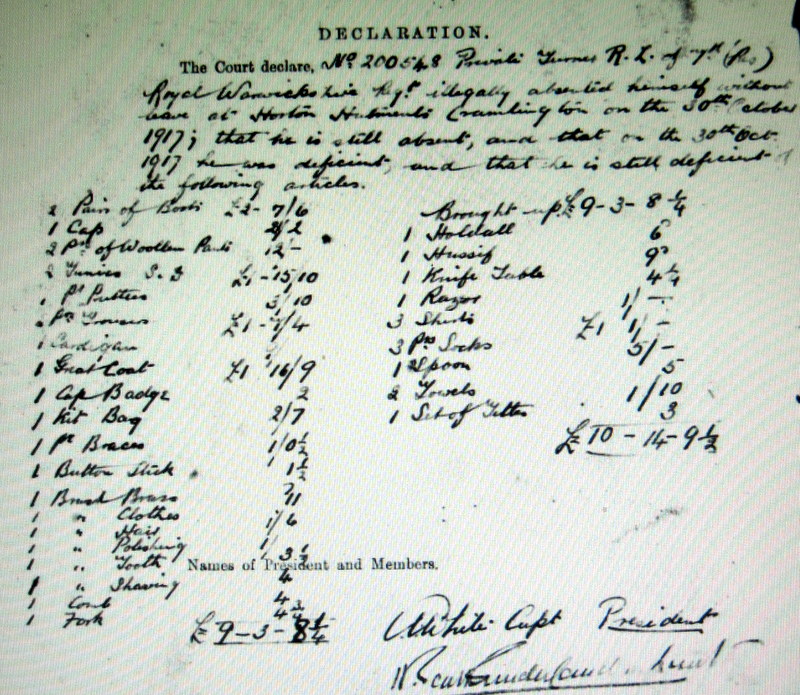 DECLARATION.
The Court declare, No 200548 Private Turner R. L. of 7th (Res)
Royal Warwickshire Regt. illegally absented himself without
leave at Horton Hutments Cramlington on the 30th October
1917; that he is still absent, and that on the 30th Oct.
1917 he was deficient, and that he is still deficient of
the following articles.
2 Pairs of Boots £2 - 7/6
1 Cap 2/2
2 Prs of Woollen Pants 12/-
2 Tunics S. D £1 - 15/10
1 Pr Putties 3/10
Prs Trousers £1 - 7/4
1 Cardigan
1 Great Coat £1 16/9
1 Cap Badge 2
1 Kit Bag 2/7
1 Pr Braces 1/0½
1 Button Stick 1½
1 Brush Brass
1 " Clothes
1 " Hair 1/6
1 " Polishing
1 " Tooth 3½
1 " Shaving 4
1 Comb
1 Fork 4¾
£ 9 - 3 - 8¼
Brought up £9 - 3 - 8¼
1 Holdall 6
1 Hussif 9
1 Knife Table 4¼
1 Razor 1/-
3 Shirts £1 1/-
3 Prs Socks 5/-
1 Spoon
2 Towels 1/10
1 Set of 3
£ 10 - 14 - 9½
Names of President and Members.
White Capt President